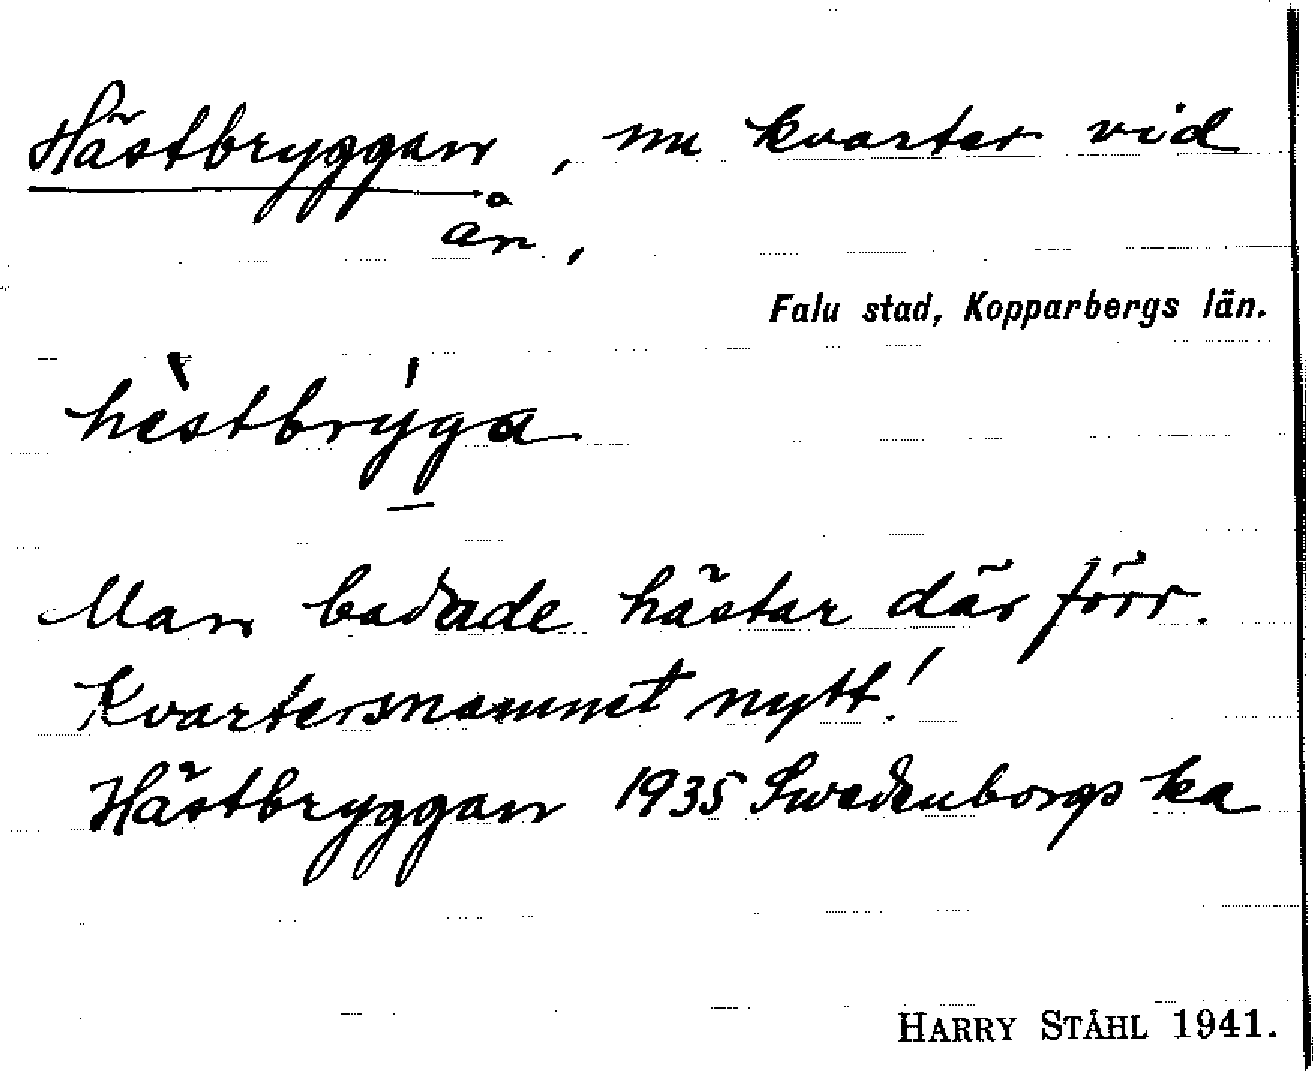 Hästbryggan, nu kvarter vid
ån,
Falu stad, Kopparbergs län.
hèstbrýga
Man badade hästar där förr.
Kvartersnamnet nytt!
Hästbryggan 1935 Swedenborgska
HARRY STÅHL 1941.